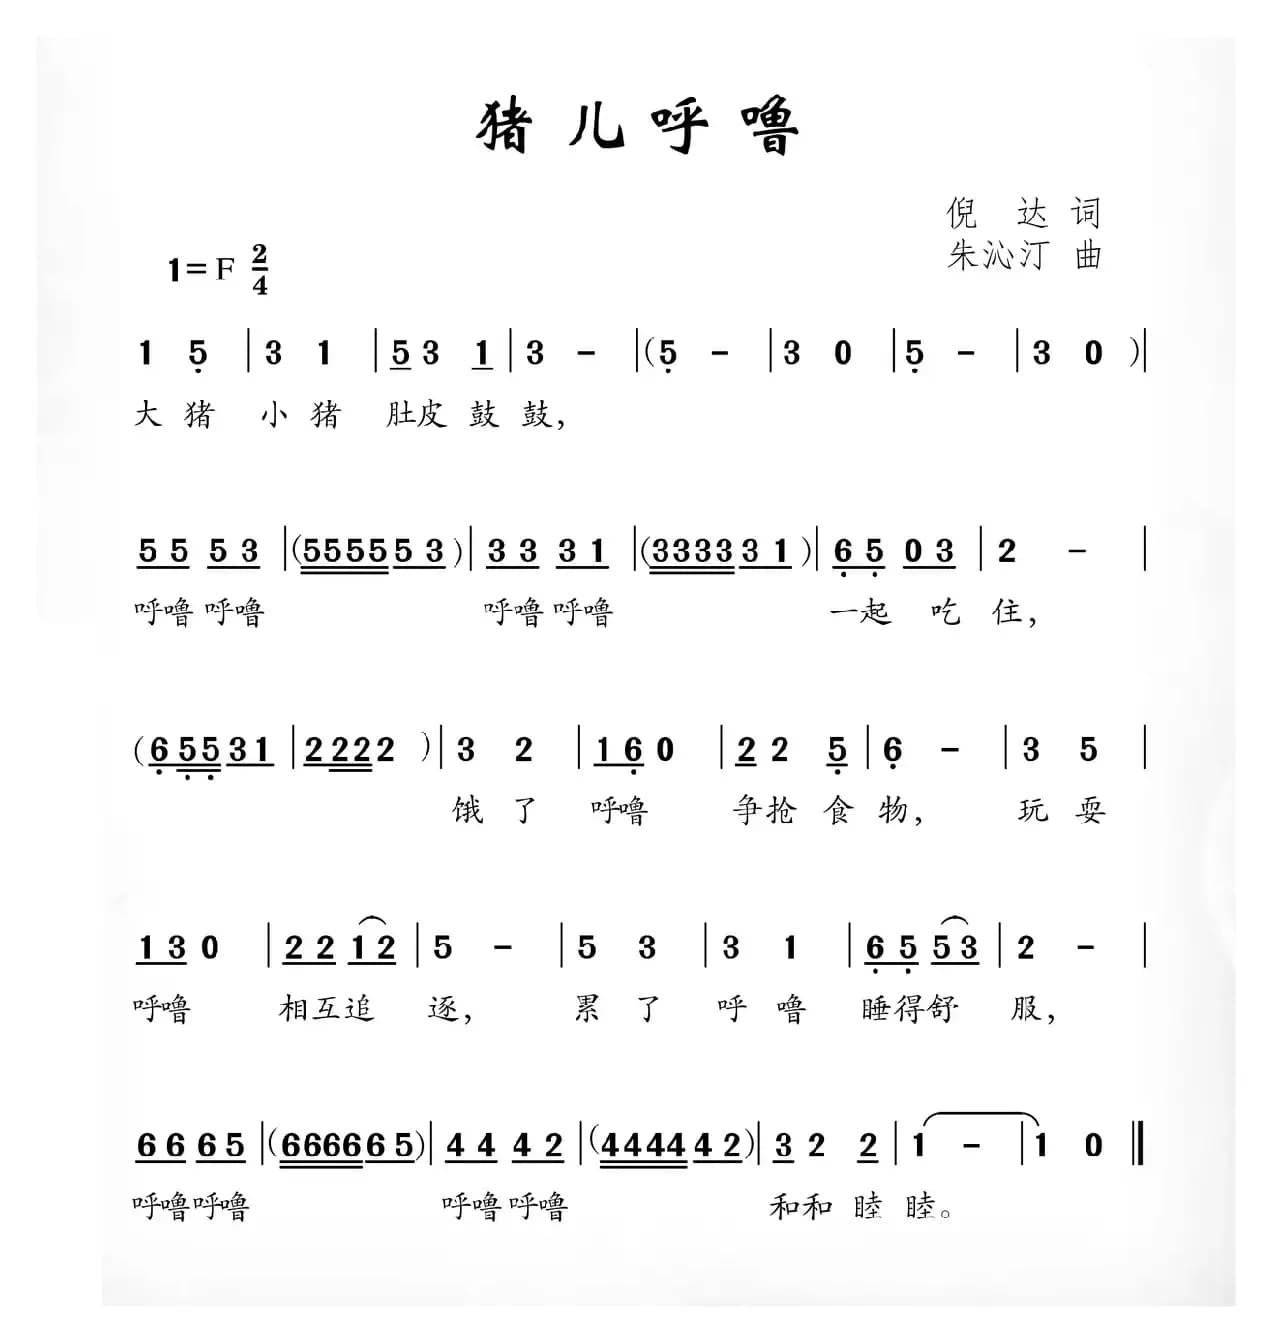 猪儿呼噜
倪 达 词
朱沁汀 曲
1=F 2/4
1 5̣ | 3 1 | 5 3 1 | 3 - | (5̣ - | 3 0 | 5̣ - | 3 0 )|
大 猪 小 猪 肚皮 鼓 鼓，
5 5 5 3 |(5555 5 3 )| 3 3 3 1 |(3333 3 1 )| 6̣ 5̣ 0 3 | 2 - |
呼噜 呼噜 呼噜 呼噜 一起 吃 住，
(6̣ 5̣5̣ 3 1 | 2 222 )| 3 2 | 1 6̣ 0 | 2 2 5̣ | 6̣ - | 3 5 |
饿 了 呼噜 争抢 食 物， 玩 耍
1 3 0 | 2 2 1 2 | 5 - | 5 3 | 3 1 | 6̣ 5̣ 5 3 | 2 - |
呼噜 相互追 逐， 累 了 呼 噜 睡得舒 服，
6 6 6 5 |(6666 6 5 )| 4 4 4 2 |(4444 4 2 )| 3 2 2 | 1 - | 1 0 ‖
呼噜呼噜 呼噜 呼噜 和和 睦 睦。